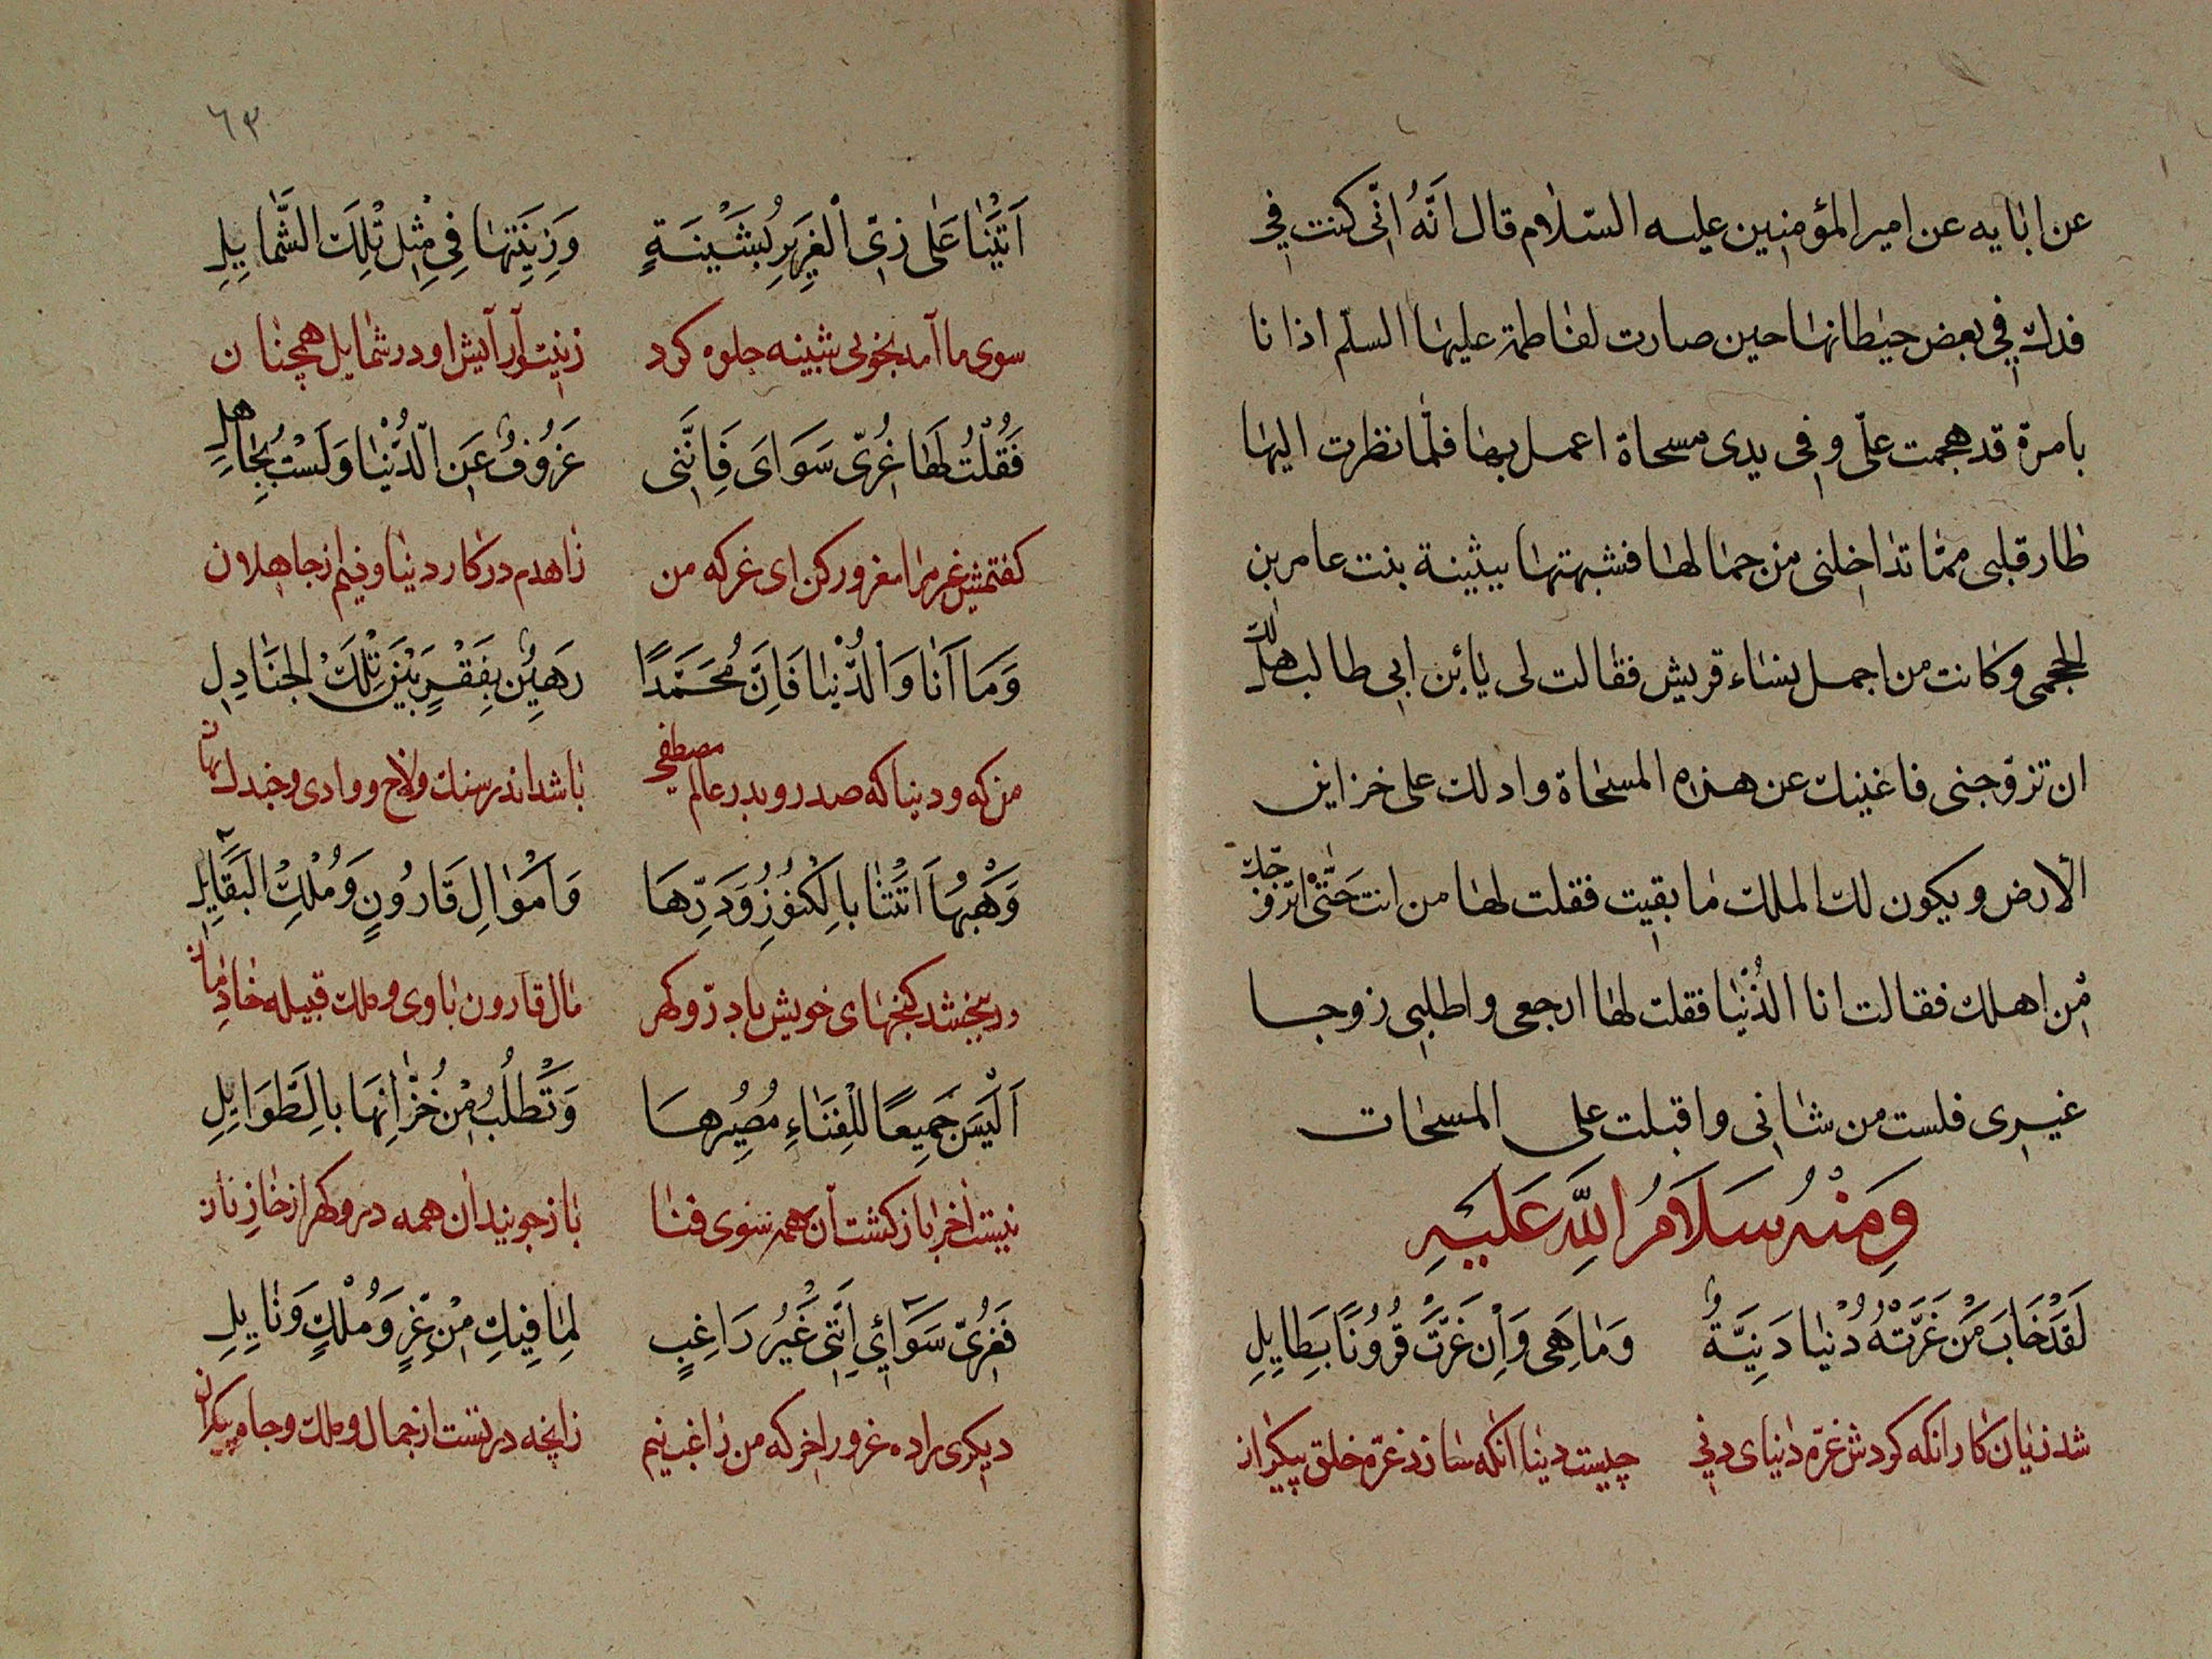 عن ابايه عن امير المؤمنين عليه السّلام قال انّهُ انّى كنت في
فدك في بعض حيطانها حين صارت لفاطمة عليها السلّم اذا نا
بامرة قد هجمت علىّ و فى يدى مسحاة اعمل بها فلمّا نظرت اليها
طار قلبى ممّا تداخلنى من جمالها فشبهتها ببثينة بنت عامر بن
الجحمى وكانت من اجمل نساء قريش فقالت لى يا بن ابى طالب هل لك
ان تزوّجنى فاغنيك عن هذه المسحاة وادلك على خزاين
الأرض ويكون لك الملك ما بقيت فقلت لها من انت حَتّى اتزوّجك
مْن اهلك فقالت انا الدُّنْيا فقلت لها ارجعى واطلبى زوجا
غيرى فلست من شانى واقبلت على المسحات
وَمِنْهُ سَلَامُ اللهِ عَلَيْهِ
لَقَدْ خَابَ مَنْ غَرَّتْهُ دُنْيا دَنِيَّةٌ وَمَا هِىَ وَاِنْ غَرَّتْ قُرُونًا بِطَايِلِ
شد زيان كار انكه كردش غرّه دنياى دنى چيست دنيا انكه سازد غرّه خلق بيكران
٦٣
اَتَتْنَا عَلَى زِىِّ الْعَزِيزِ بُثَيْنَةٍ وَزِينَتِهَا فِى مِثْلِ تِلْكَ الشَّمَايِلِ
سوى ما آمد بخوبى بثينه جلوه كرد زينت و آرايش او در شمايل همچنان
فَقُلْتُ لَهَا غُرِّى سَوَاىَ فَاِنَّنِى عَزُوفٌ عَنِ الدُّنْيَا وَلَسْتُ بِجَاهِلِ
كفتمش غير مرا مغرور كن اى غر كه من زاهدم در كار دنيا و نيم از جاهلان
وَمَا اَنَا وَالدُّنْيَا فَاِنَّ مُحَمَّدًا رَهِينٌ بِفَقْرٍ بَيْنَ تِلْكَ الْجَنَادِلِ
من كه و دنيا كه صدر و بدر عالم مصطفى باشد اندر سنك ولاخ و وادى و جندل نهان
وَهَبْهَا اَتَتْنَا بِالْكُنُوزِ وَدَرِّهَا وَاَمْوَالِ قَارُونٍ وَمُلْكِ الْقَبَايِلِ
ور ببخشد كنجهاى خويش با درّ و كهر مال قارون با وى و ملك قبيله خادمان
اَلَيْسَ جَمِيعًا لِلْفَنَاءِ مُصِيرُهَا وَتَطْلُبُ مِنْ خُزَّانِهَا بِالطَّوَايِلِ
نيست آخر باز كشت آن همه سوى فنا باز جويند آن همه در و كهر از خازنان
فَغُرِّى سَوَائِي اِنَّنِى غَيْرُ رَاغِبٍ لِمَا فِيكِ مِنْ عِزٍّ وَمُلْكٍ وَنَايِلِ
ديكرى را ده غرور آخر كه من راغب نيم زانچه در تست از جمال و ملك و جاه بيكران